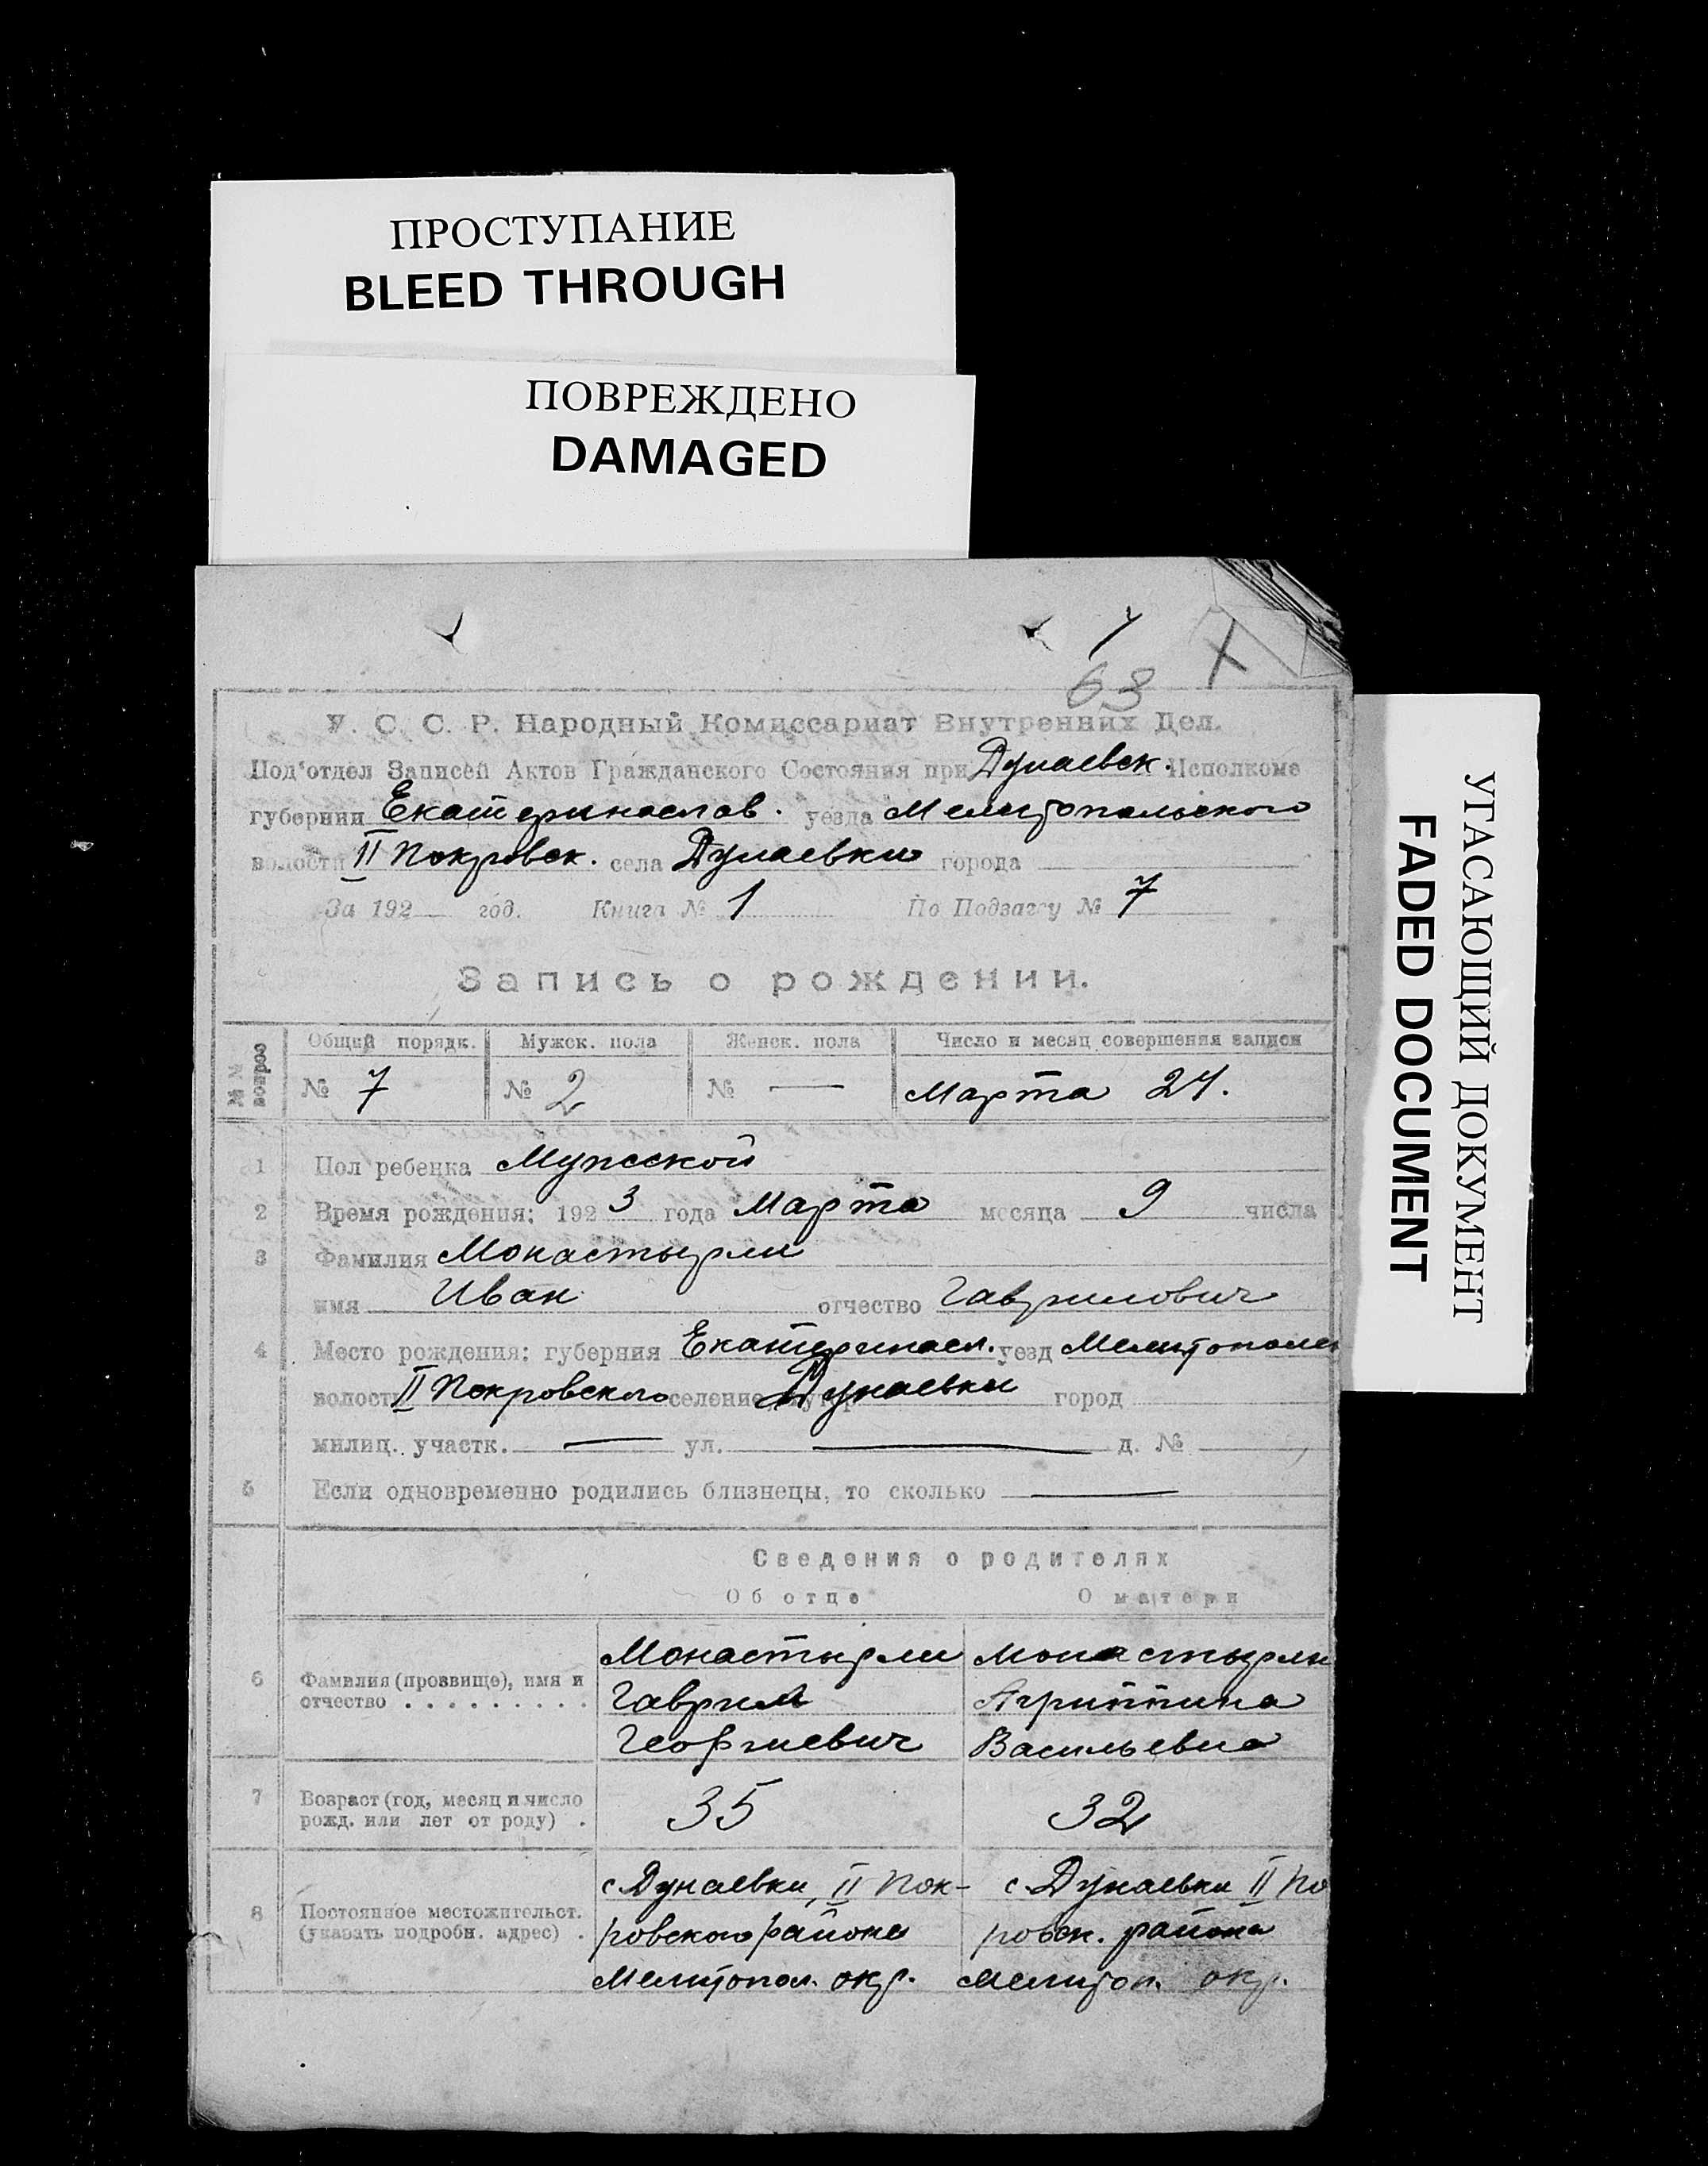 ПРОСТУПАНИЕ
BLEED THROUGH
ПОВРЕЖДЕНО
DAMAGED
УГАСАЮЩИЙ ДОКУМЕНТ
FADED DOCUMENT
7
63
У. С. С. Р. Народный Комиссариат Внутренних Дел.
Под'отдел Записей Актов Гражданского Состояния при Дунаевск. Исполкоме
губернии Екатеринослав. уезда Мелитопольского
волости II Покровск. села Дунаевки города
За 192 год. Книга № 1 По Подзагсу № 7
Запись о рождении.
№№ вопросов Общий порядк. Мужск. пола Женск. пола Число и месяц совершения записи
№ 7 № 2 № — Марта 27.
1 Пол ребенка Мужской
2 Время рождения: 1923 года Марта месяца 9 числа
3 Фамилия Монастырли
имя Иван отчество Гаврилович
4 Место рождения: губерния Екатериносл. уезд Мелитополь
волость II Покровского селение, хутор Дунаевки город
милиц. участк. — ул. — д. №
5 Если одновременно родились близнецы, то сколько —
Сведения о родителях
Об отце О матери
6 Фамилия (прозвище), имя и отчество . . . . . . . . .
Монастырли Монастырли
Гаврил Агриппина
Георгиевич Васильевна
7 Возраст (год, месяц и число рожд. или лет от роду) . 35 32
8 Постоянное местожительст. (указать подробн. адрес) .
с Дунаевки, II Пок- с Дунаевки II По
ровского района ровск. района
Мелитопол. окр. Мелитоп. окр.